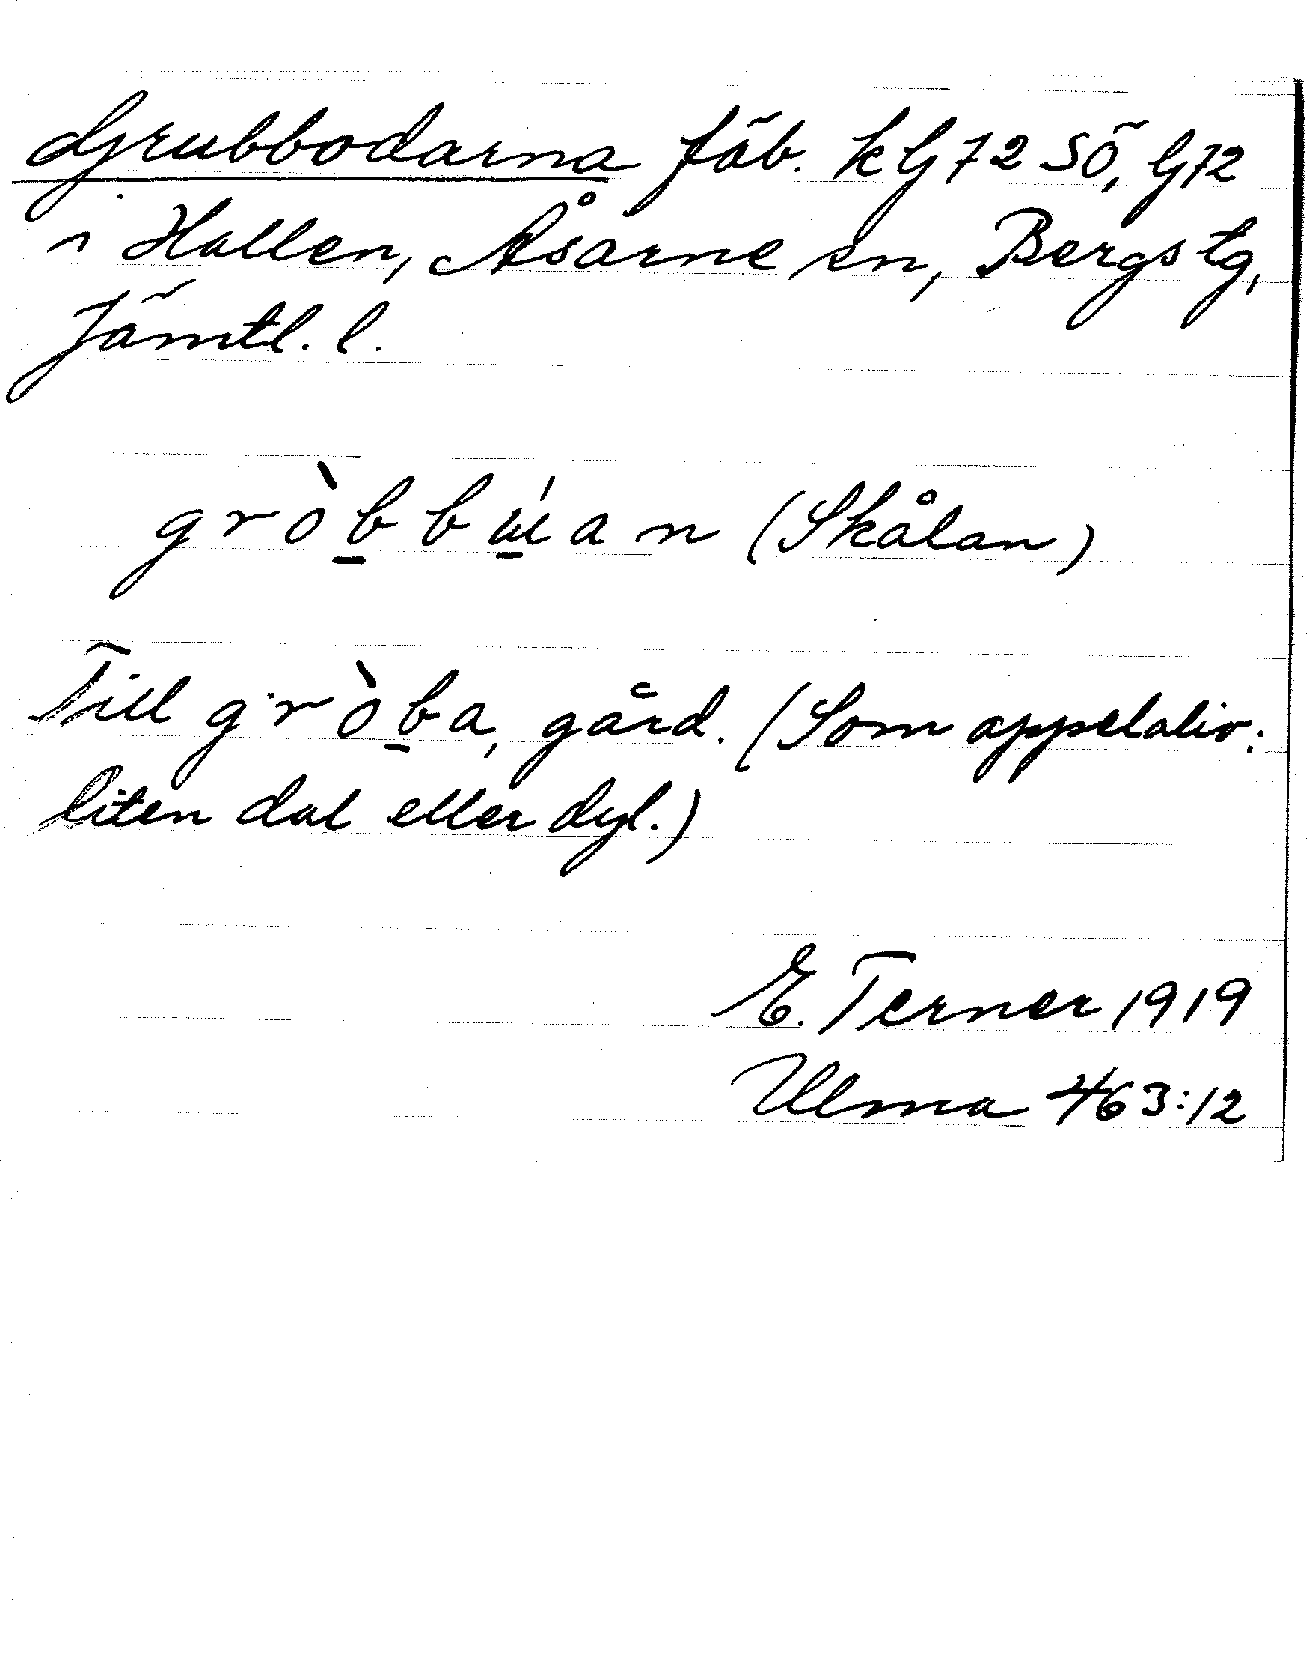 Grubbodarna fäb. kG72 SÖ, G72
n Hallen, Åsarne sn, Bergs tg,
Jämtl. l.
gròb̲bɯ̲́an (Skålan)
Till gròb̲a, gård. (Som appelativ:
liten dal eller dyl.)
E. Terner 1919
Ulma 463:12